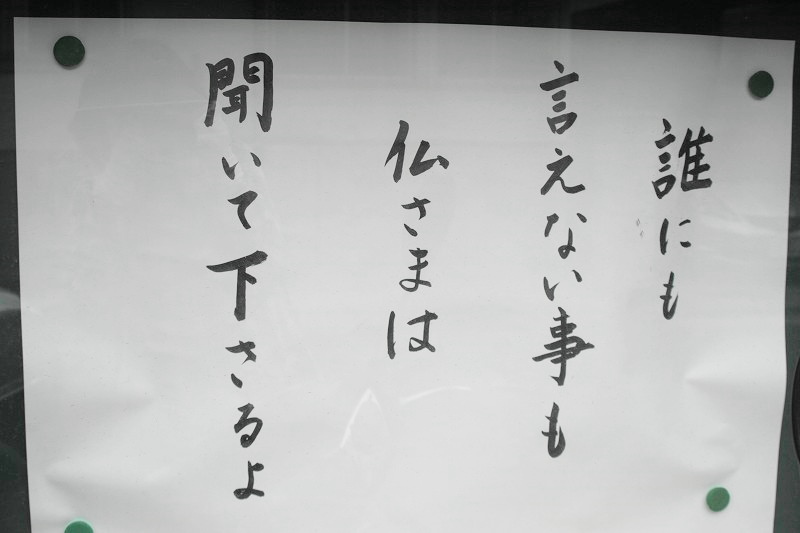 誰にも
言えない事も
仏さまは
聞いて下さるよ